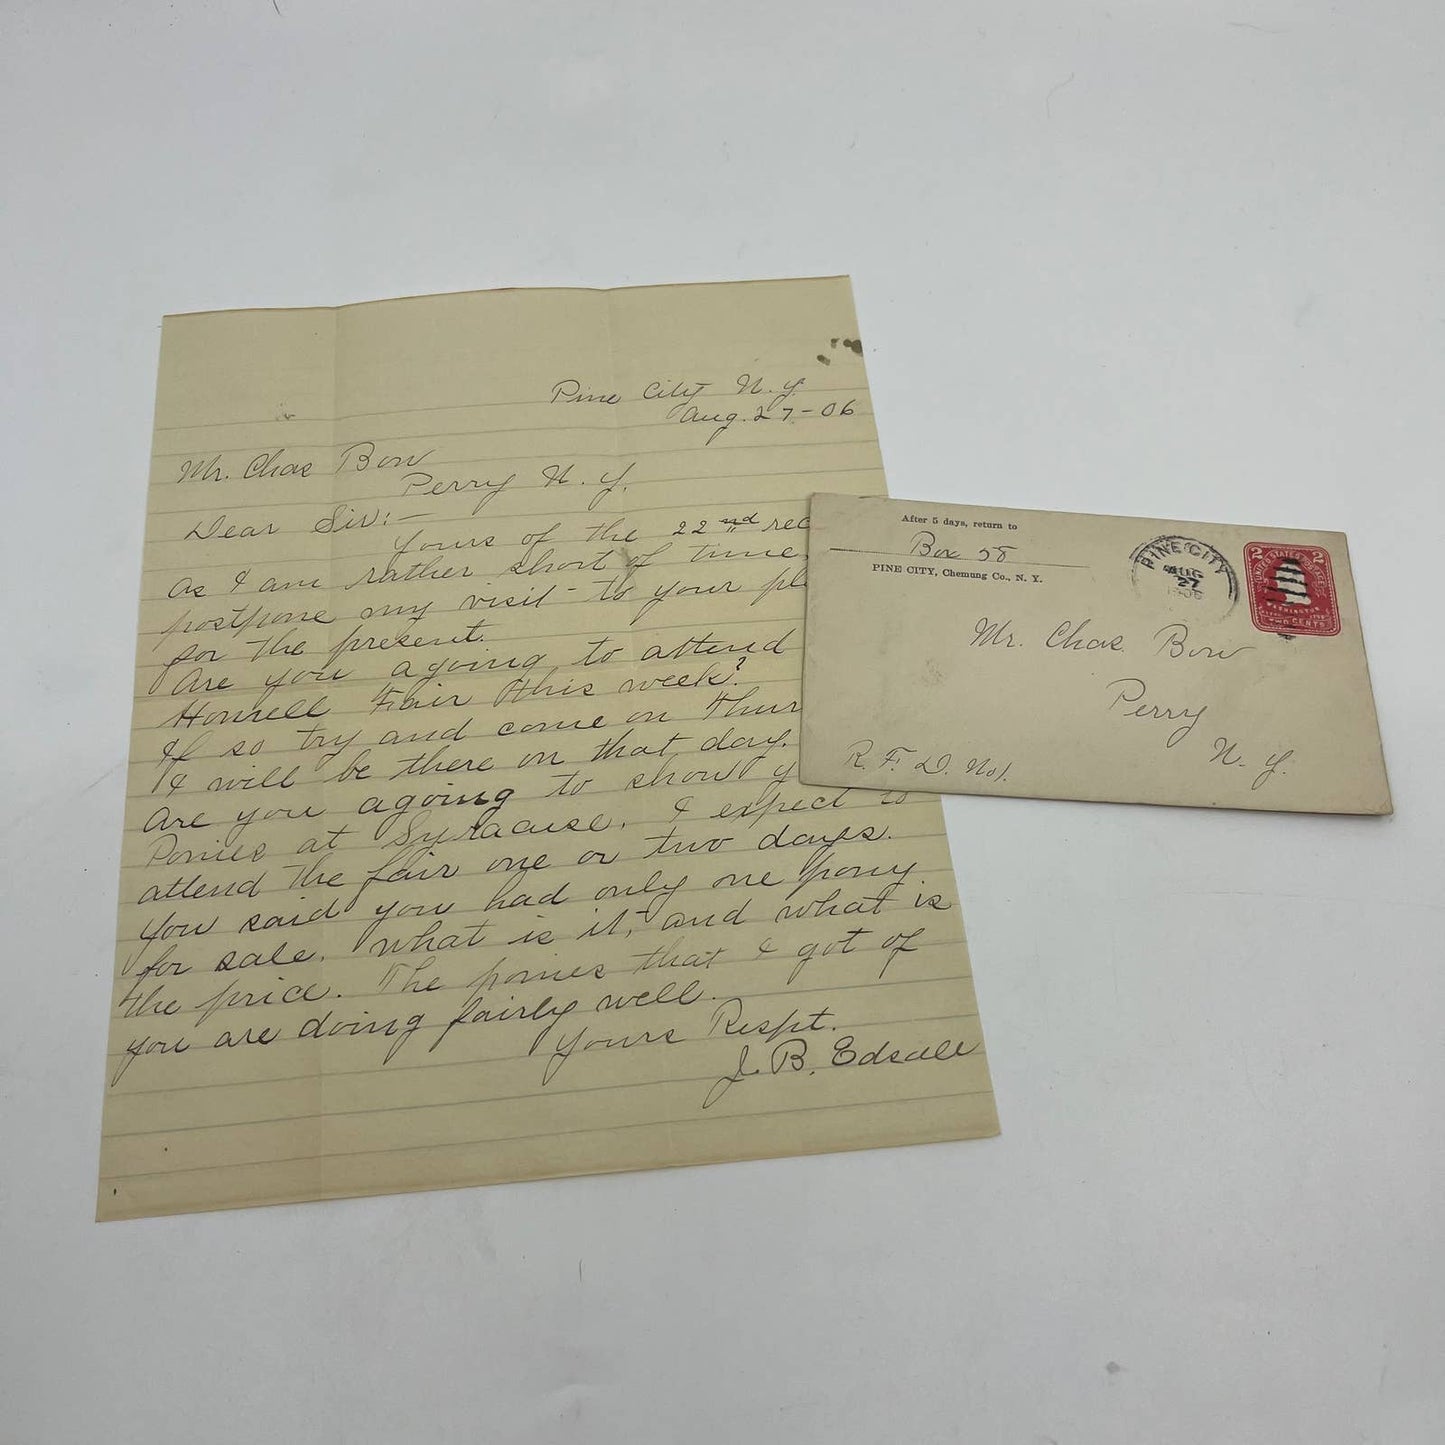 Pine City N.Y.
Aug. 27-06
Mr. Chas Bow
Perry N.Y.
Dear Sir:-
Yours of the 22nd rec
As I am rather short of time,
postpone my visit to your pl
for the present.
Are you agoing to attend
Hornell Fair this week?
If so try and come on Thur
I will be there on that day.
Are you agoing to show y
Ponies at Syracuse. I expect to
attend the fair one or two days.
You said you had only one pony
for sale. What is it, and what is
the price. The ponies that I got of
you are doing fairly well.
Yours Respt.
J. B. Edsall
After 5 days, return to
Box 58
PINE CITY, Chemung Co., N. Y.
PINE CITY
AUG
27
1906
2 UNITED STATES POSTAGE 2
WASHINGTON
TWO CENTS
Mr. Chas. Bow
Perry
N.Y.
R.F.D. No1.